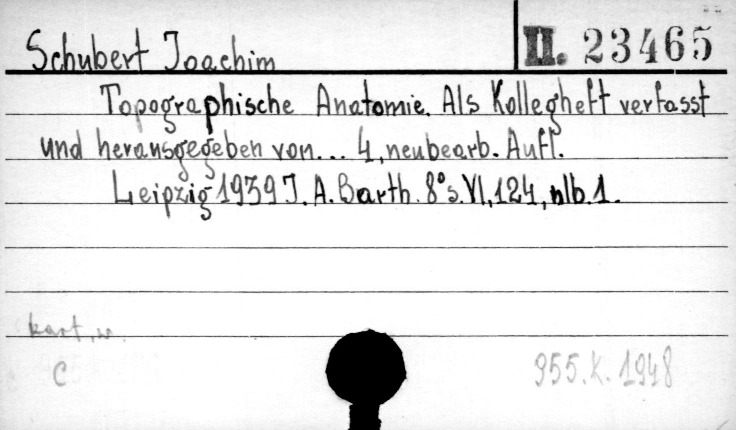 Schubert Joachim II. 23465
Topographische Anatomie. Als Kollegheft verfasst
und herausgegeben von... 4, neubearb. Aufl.
Leipzig 1939 J. A. Barth. 8° s. VI, 124, nlb. 1.
kart.
C 955. K. 1948